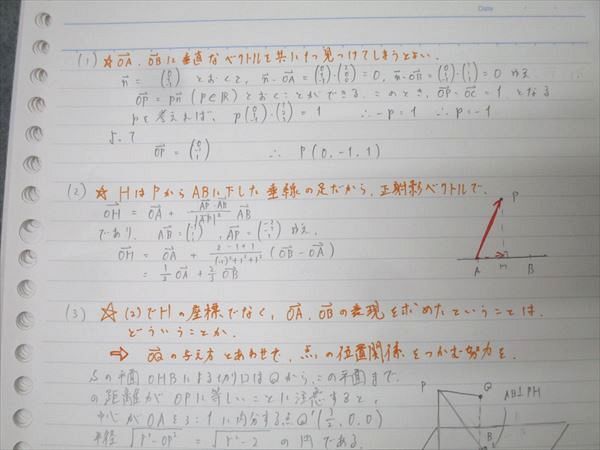 Date
(1) ☆ OA, OBに垂直なベクトルを共に1つ見つけてしまうとよい.
n = (0 1 1) とおくと, n·OA = (0 1 1)·(2 0 0) = 0, n·OB = = 0 ゆえ
OP = pn (p∈R) とおくことができる. このとき, OP·OC = 1 となる
pを考えれば, = 1 ∴ -p = 1 ∴ p = -1
よって
OP = ∴ P(0, -1, 1)
(2) ☆ HはPからABに下した垂線の足だから, 正射影ベクトルで.
OH = OA + AP·AB / |AB|² AB
であり, AB = , AP = ゆえ,
OH = OA + 2-1+1 / (OB - OA)
= 1/3 OA + 2/3 OB
P
A
H
B
(3) ☆ (2)でHの座標でなく, OA, OBの表現を求めたということは,
どういうことか.
⇨ OQの与え方とあわせて, 点の位置関係をつかむ努力を.
Sの平面OHBによる切り口はQから, この平面まで.
の距離がOPに等しいことに注意すると,
中心がOAを3:1に内分する点Q'(3/2, 0, 0)
半径 √r²-OP² = √r²-2 の円である.
P
Q
AB⊥PH
B